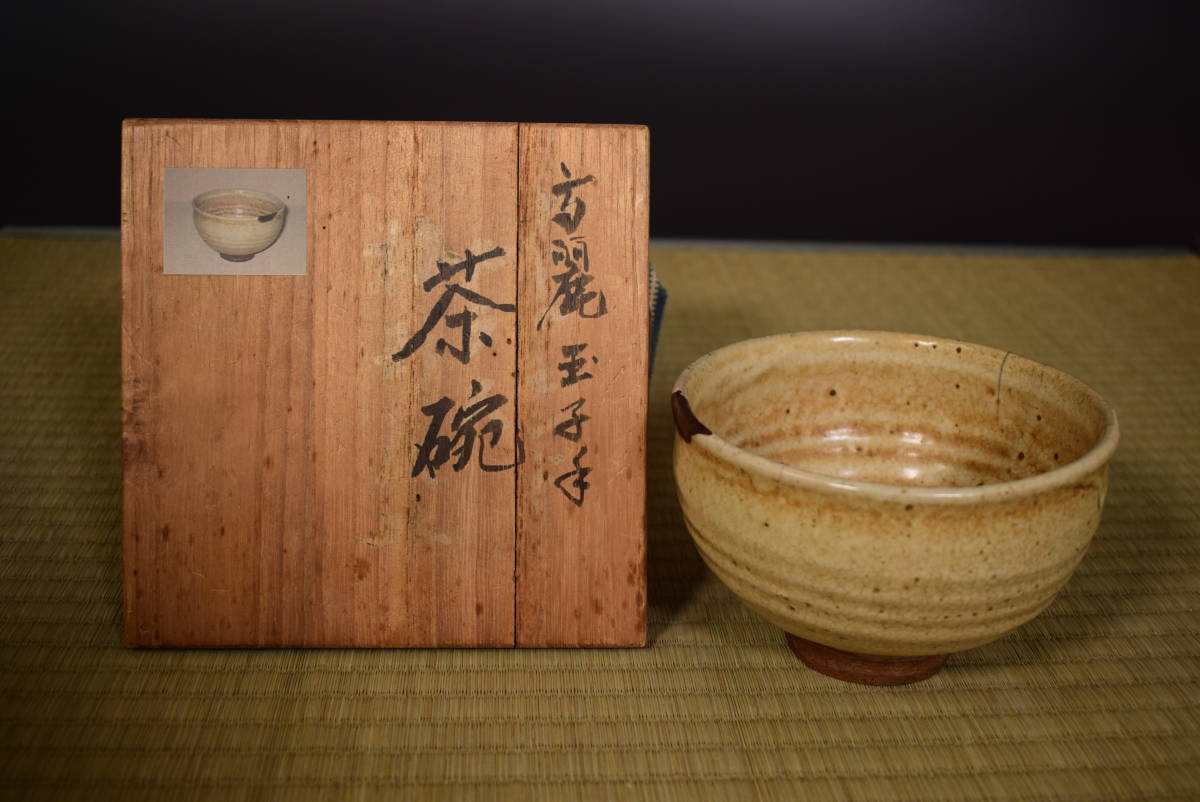 高麗玉子手
茶碗